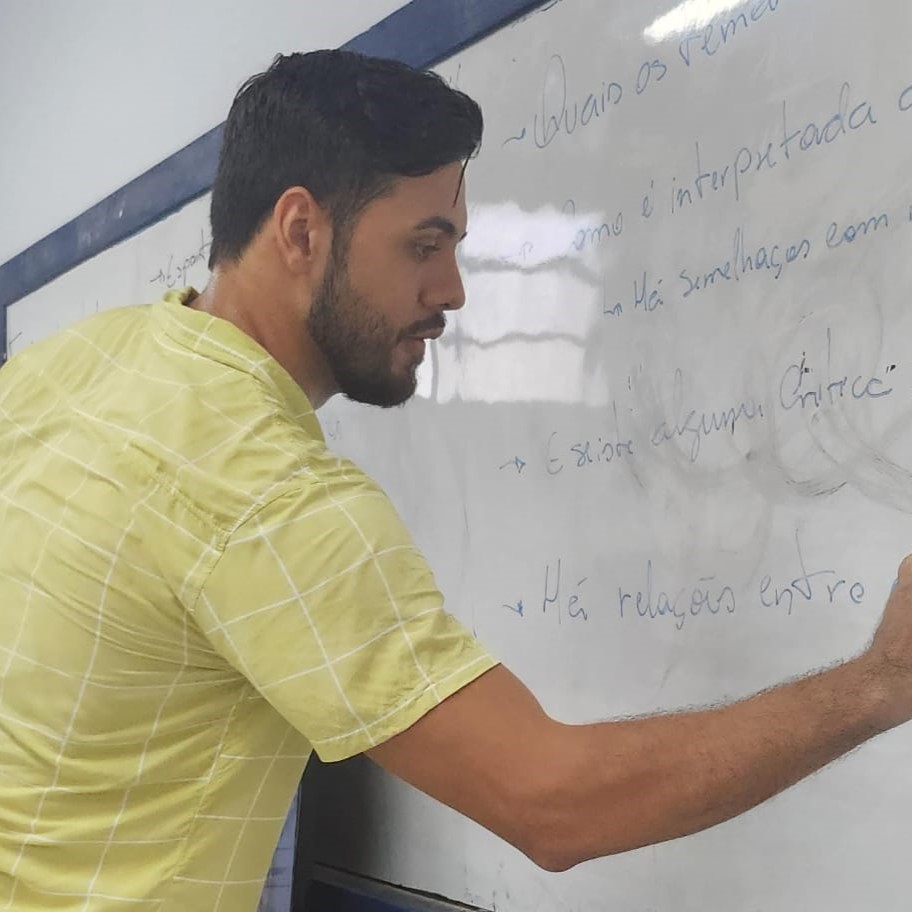 Quais os temas
Como é interpretada a
Há semelhaças com
Existe alguma Crítica
Há relações entre